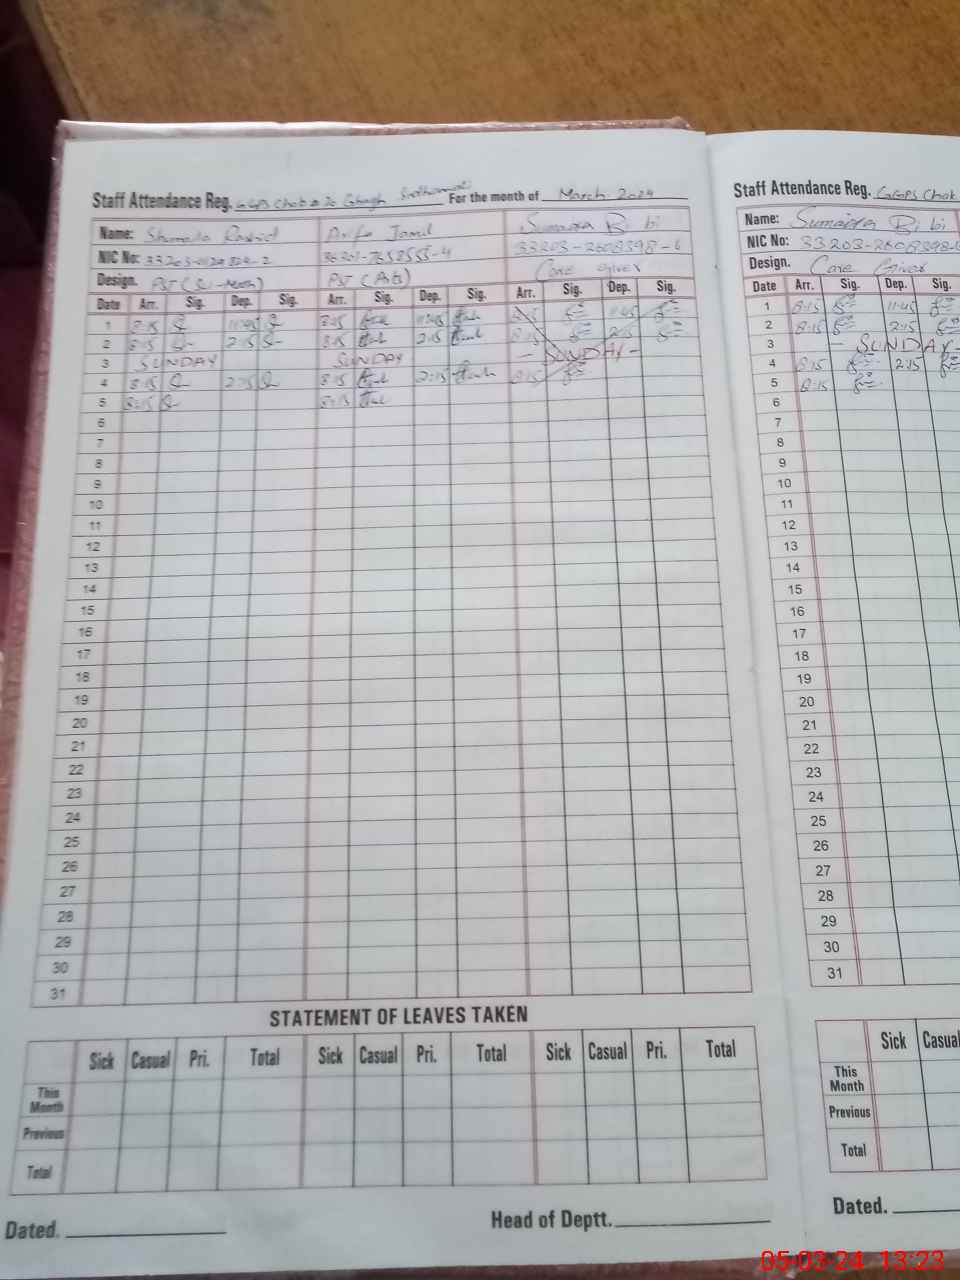 Staff Attendance Reg. GGPS Chak For the month of March 2024
Name: Shumaila Rashid Arifa Jamil Sumaira Bibi
NIC No: 33203-2608398-6
Design. PST (Sci-Math) PST (Arts) Care Giver
Date Arr. Sig. Dep. Sig. Arr. Sig. Dep. Sig. Arr. Sig. Dep. Sig.
1 8:15 11:45 8:15 11:45 8:15 11:45
2 8:15 2:15 8:15 2:15 8:15 2:15
3 SUNDAY SUNDAY - SUNDAY -
4 8:15 2:15 8:15 2:15 8:15
5 8:15 8:15
6
7
8
9
10
11
12
13
14
15
16
17
18
19
20
21
22
23
24
25
26
27
28
29
30
31
STATEMENT OF LEAVES TAKEN
Sick Casual Pri. Total Sick Casual Pri. Total Sick Casual Pri. Total
This Month
Previous
Total
Dated. Head of Deptt.
Staff Attendance Reg. GGPS Chak
Name: Sumaira Bibi
NIC No: 33203-2608398-6
Design. Care Giver
Date Arr. Sig. Dep. Sig.
1 8:15 11:45
2 8:15 2:15
3 - SUNDAY -
4 8:15 2:15
5 8:15
6
7
8
9
10
11
12
13
14
15
16
17
18
19
20
21
22
23
24
25
26
27
28
29
30
31
Sick Casual
This Month
Previous
Total
Dated.
05-03-24 13:23